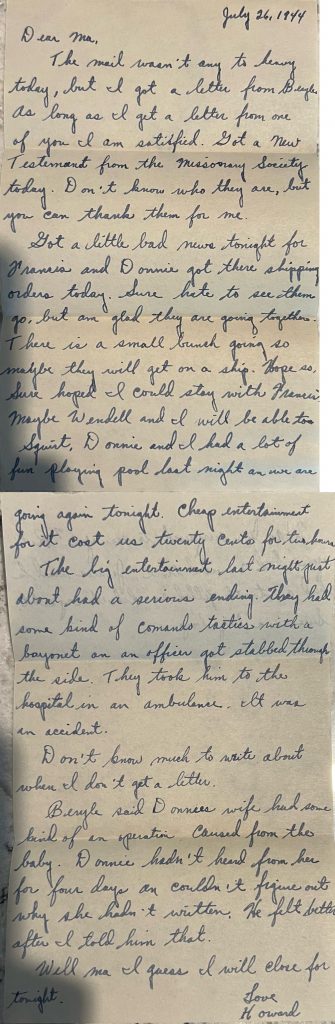 July 26, 1944
Dear Ma,
The mail wasn't any to heavy
today, but I got a letter from Beryle.
As long as I get a letter from one
of you I am satisfied. Got a New
Testemand from the Missionary Society
today. Don't know who they are, but
you can thank them for me.
Got a little bad news tonight for
Francis and Donnie got there shipping
orders today. Sure hate to see them
go, but am glad they are going together.
There is a small bunch going so
maybe they will get on a ship. Hope so.
Sure hoped I could stay with Francis.
Maybe Wendell and I will be able too
Squirt, Donnie and I had a lot of
fun playing pool last night an we are
going again tonight. Cheap entertainment
for it cost us twenty cents for two hours
The big entertainment last night just
about had a serious ending. They had
some kind of comando tasties with a
bayonet an an officer got stabbed through
the side. They took him to the
hospital in an ambulance. It was
an accident.
Don't know much to write about
when I don't get a letter.
Beryle said Donnees wife had some
kind of an operation caused from the
baby. Donnie hadn't heard from her
for four days an couldn't figure out
why she hadn't written. He felt better
after I told him that.
Well ma I guess I will close for
tonight.
Love
Howard